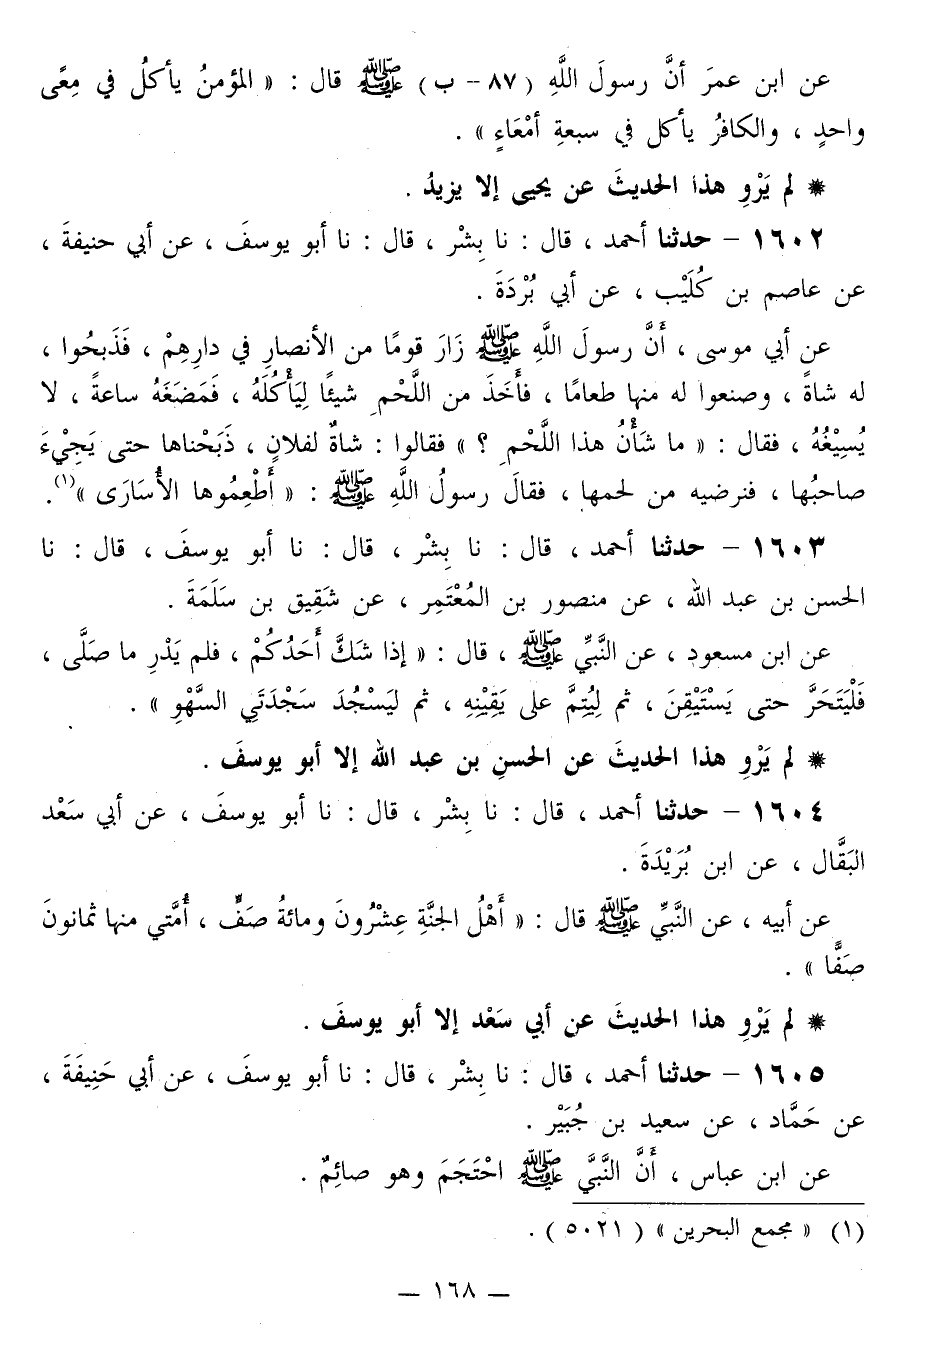 عن ابن عمرَ أنَّ رسولَ اللَّهِ ( ٨٧ – ب ) ﷺ قال : « المؤمنُ يأكلُ في مِعًى
واحدٍ ، والكافرُ يأكل في سبعةِ أمْعَاءٍ » .
* لم يَرْوِ هذا الحديثَ عن يحيى إلا يزيدُ .
١٦٠٢ – حدثنا أحمد ، قال : نا بِشْر ، قال : نا أبو يوسفَ ، عن أبي حنيفةَ ،
عن عاصم بن كُلَيْب ، عن أبي بُرْدَةَ .
عن أبي موسى ، أَنَّ رسولَ اللَّهِ ﷺ زَارَ قومًا من الأنصارِ في دارِهِمْ ، فَذَبحُوا ،
له شاةً ، وصنعوا له منها طعامًا ، فأَخَذَ من اللَّحْمِ شيئًا لِيَأْكُلَهُ ، فَمَضَغَهُ ساعةً ، لا
يُسِيْغُهُ ، فقال : « ما شَأْنُ هذا اللَّحْمِ ؟ » فقالوا : شاةٌ لفلانٍ ، ذَبَحْناها حتى يَجِيْءَ
صاحبُها ، فنرضيه من لحمها ، فقالَ رسولُ اللَّهِ ﷺ : « أَطْعِمُوها الأُسَارَى »(١).
١٦٠٣ – حدثنا أحمد ، قال : نا بِشْر ، قال : نا أبو يوسفَ ، قال : نا
الحسن بن عبد الله ، عن منصور بن المُعْتَمِر ، عن شَقِيق بن سَلَمَةَ .
عن ابن مسعود ، عن النَّبيِّ ﷺ ، قال : « إذا شَكَّ أَحَدُكُمْ ، فلم يَدْرِ ما صَلَّى ،
فَلْيَتَحَرَّ حتى يَسْتَيْقِنَ ، ثم لِيُتِمَّ على يَقِيْنِهِ ، ثم ليَسْجُدَ سَجْدَتَي السَّهْوِ » .
* لم يَرْوِ هذا الحديثَ عن الحسنِ بن عبد الله إلا أبو يوسفَ .
١٦٠٤ – حدثنا أحمد ، قال : نا بِشْر ، قال : نا أبو يوسفَ ، عن أبي سَعْد
البَقَّال ، عن ابن بُرَيْدَةَ .
عن أبيه ، عن النَّبيِّ ﷺ قال : « أَهْلُ الجنَّةِ عِشْرُونَ ومائةُ صَفٍّ ، أُمَّتي منها ثمانونَ
صَفًّا » .
* لم يَرْوِ هذا الحديثَ عن أبي سَعْد إلا أبو يوسفَ .
١٦٠٥ – حدثنا أحمد ، قال : نا بِشْر ، قال : نا أبو يوسفَ ، عن أبي حَنِيفَةَ ،
عن حَمَّاد ، عن سعيد بن جُبَيْر .
عن ابن عباس ، أَنَّ النَّبيَّ ﷺ احْتَجَمَ وهو صائِمٌ .
(١) « مجمع البحرين » ( ٥٠٢١ ) .
— ١٦٨ —